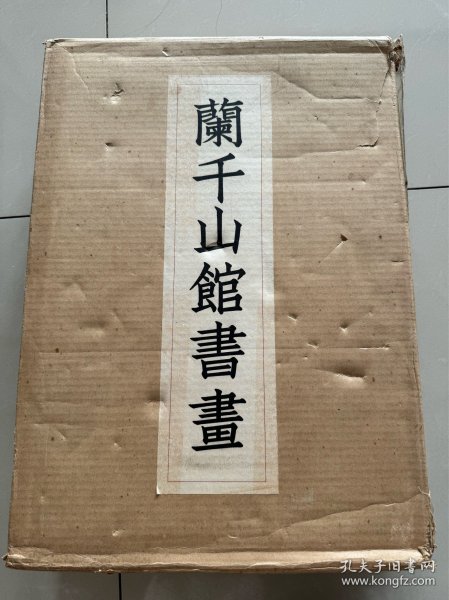 蘭千山館書畫
孔夫子旧书网
www.kongfz.com